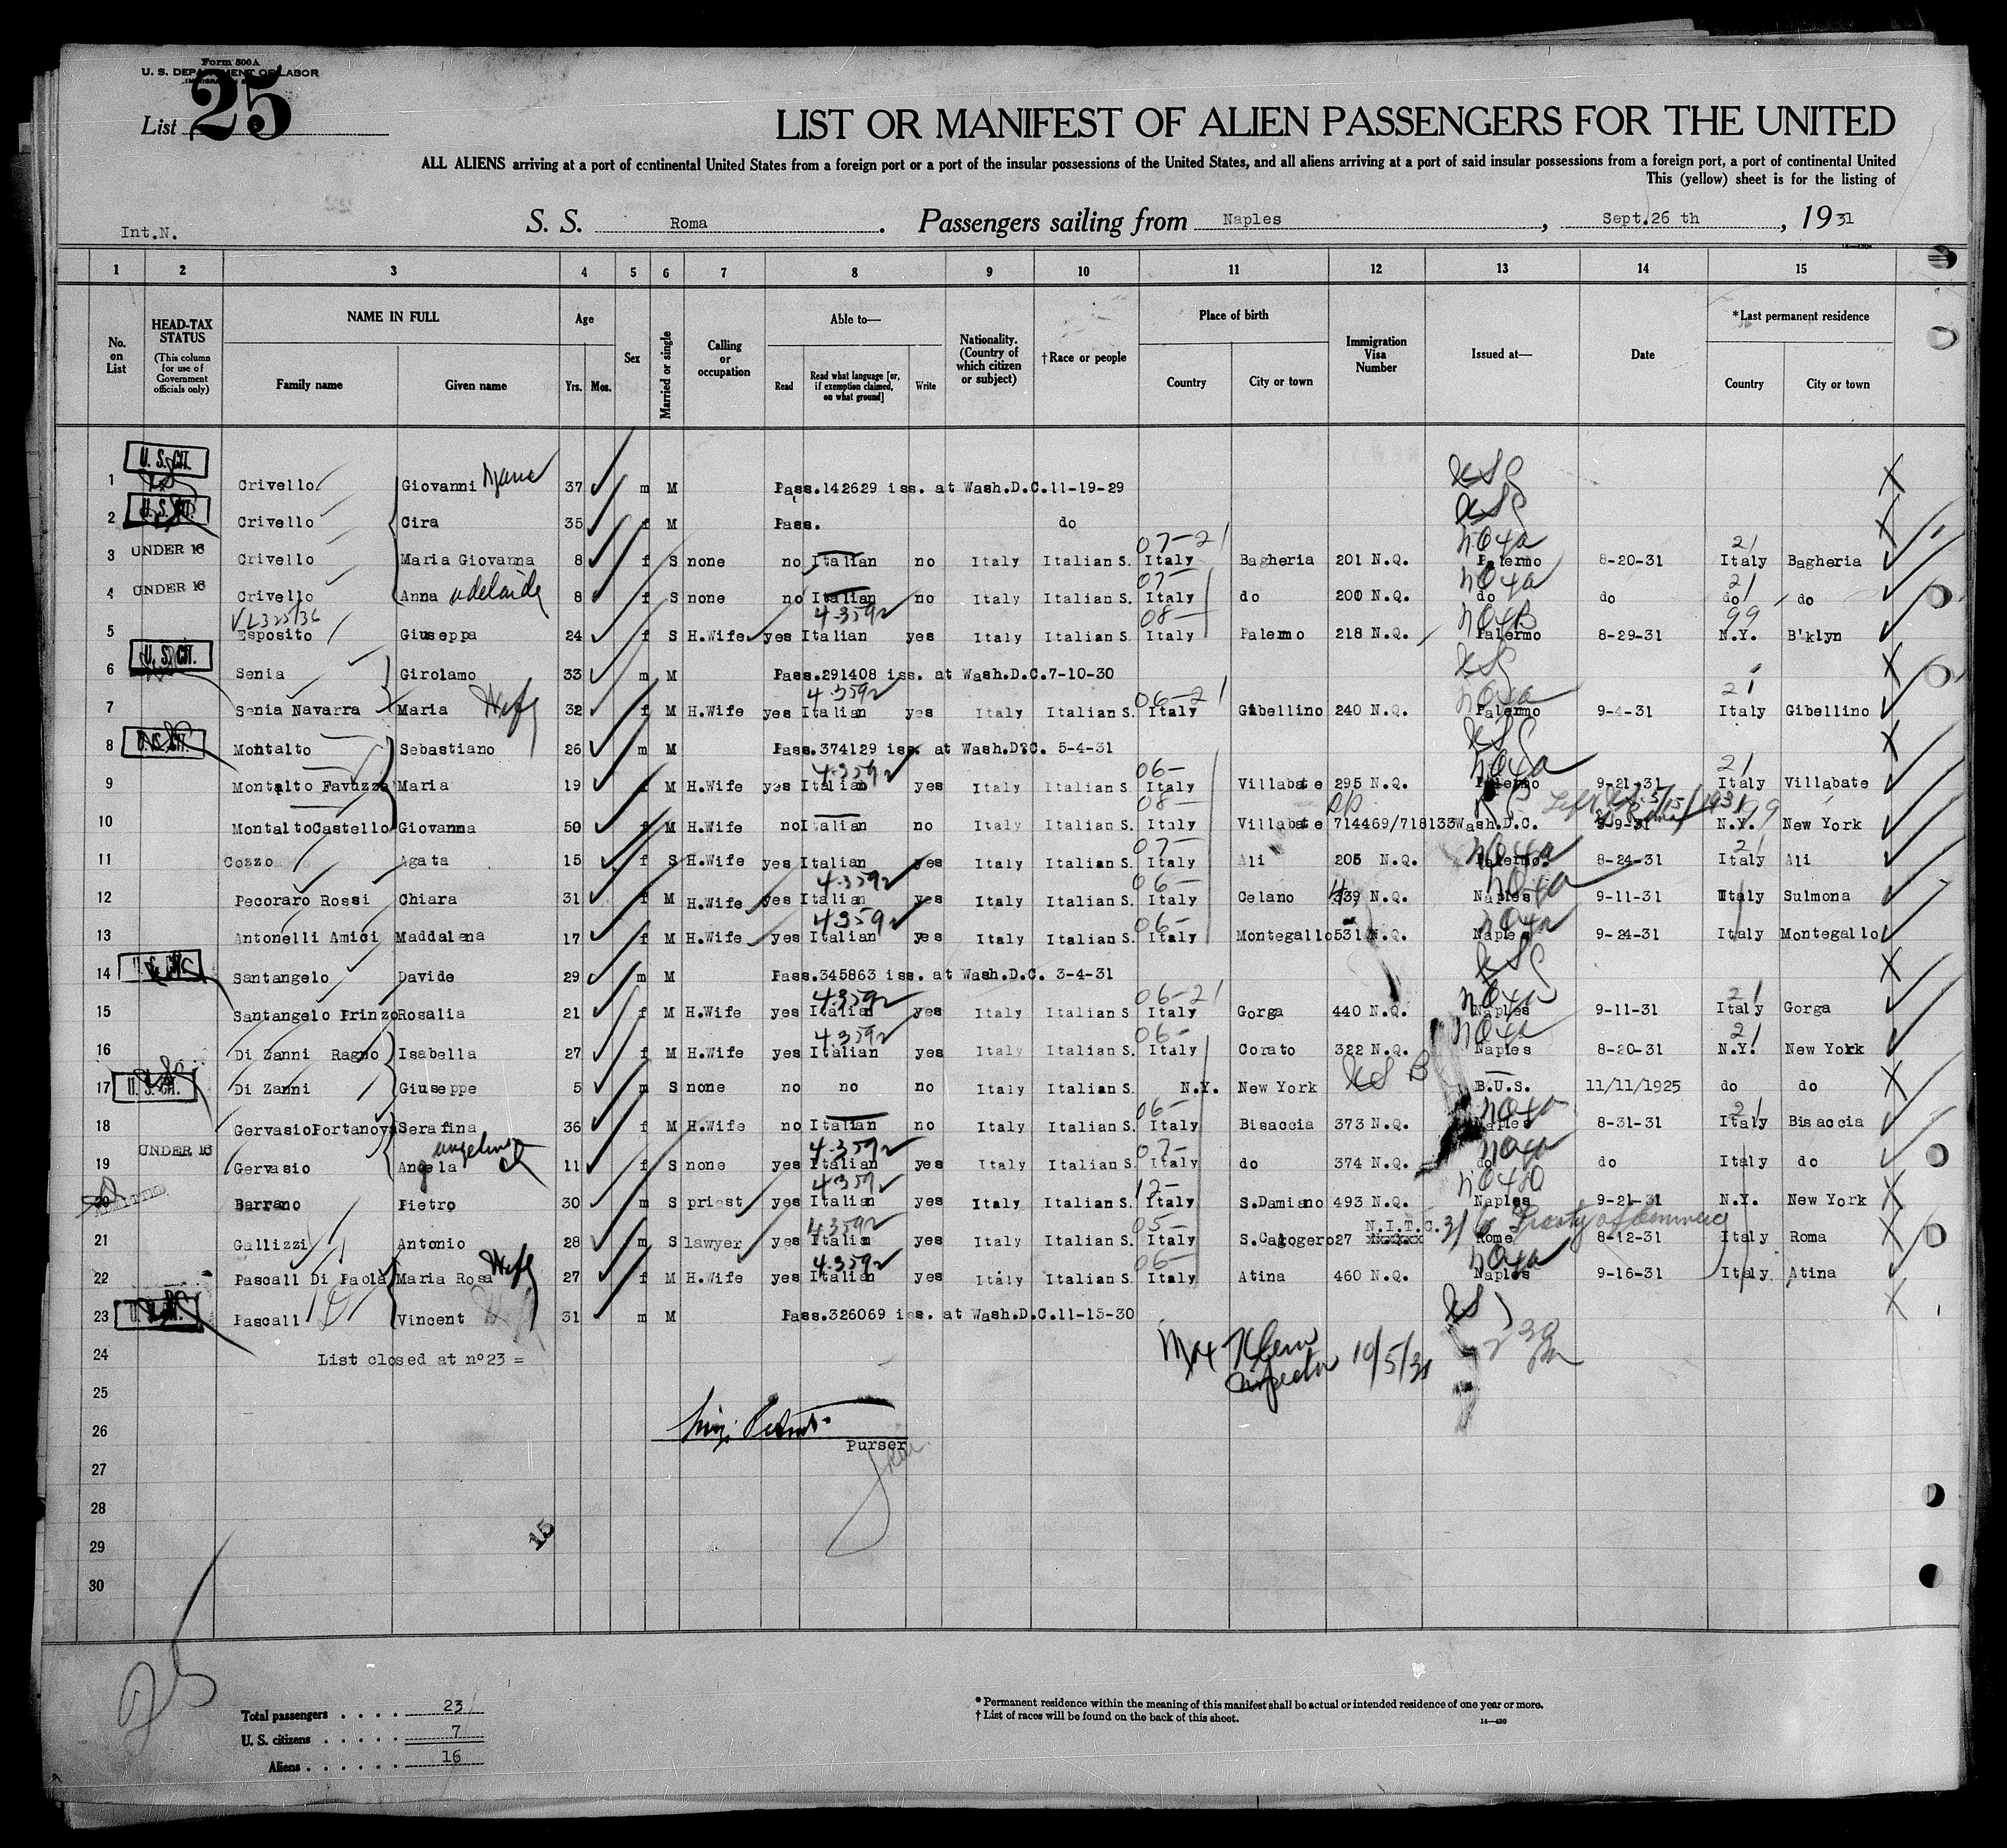 Form 500 A
U. S. DEPARTMENT OF LABOR
List 25
LIST OR MANIFEST OF ALIEN PASSENGERS FOR THE UNITED
ALL ALIENS arriving at a port of continental United States from a foreign port or a port of the insular possessions of the United States, and all aliens arriving at a port of said insular possessions from a foreign port, a port of continental United
This (yellow) sheet is for the listing of
Int.N.
S. S. Roma. Passengers sailing from Naples, Sept.26 th, 1931
1 2 3 4 5 6 7 8 9 10 11 12 13 14 15
No. on List
HEAD-TAX STATUS (This column for use of Government officials only)
NAME IN FULL
Family name Given name
Age
Yrs. Mos.
Sex
Married or single
Calling or occupation
Able to—
Read Read what language [or, if exemption claimed, on what ground] Write
Nationality. (Country of which citizen or subject)
† Race or people
Place of birth
Country City or town
Immigration Visa Number
Issued at—
Date
*Last permanent residence
Country City or town
1 U. S. CIT. Crivello Giovanni 37 m M Pass.142629 iss. at Wash.D.C.11-19-29 USC
2 U. S. CIT. Crivello Cira 35 f M Pass. do USC
3 UNDER 16 Crivello Maria Giovanna 8 f S none no Italian no Italy Italian S. 07-21 Italy Bagheria 201 N.Q. Palermo 8-20-31 21 Italy Bagheria
4 UNDER 16 Crivello Anna Adelaide 8 f S none no Italian no Italy Italian S. 07- Italy do 200 N.Q. do do 21 do do
5 Esposito Giuseppa 24 f S H.Wife yes Italian yes Italy Italian S. 08- Italy Palermo 218 N.Q. Palermo 8-29-31 99 N.Y. B'klyn
6 U. S. CIT. Senia Girolamo 33 m M Pass.291408 iss. at Wash.D.C.7-10-30 USC
7 Senia Navarra Maria Wife 32 f M H.Wife yes Italian yes Italy Italian S. 06-21 Italy Gibellino 240 N.Q. Palermo 9-4-31 21 Italy Gibellino
8 U. S. CIT. Montalto Sebastiano 26 m M Pass.374129 iss. at Wash.D.C. 5-4-31 USC
9 Montalto Favuzza Maria 19 f M H.Wife yes Italian yes Italy Italian S. 06- Italy Villabate 295 N.Q. Palermo 9-21-31 21 Italy Villabate
10 MontaltoCastello Giovanna 50 f M H.Wife no Italian no Italy Italian S. 08- Italy Villabate 714469/718133 Wash.D.C. 3-9-31 99 N.Y. New York
11 Cozzo Agata 15 f S H.Wife yes Italian yes Italy Italian S. 07- Italy Ali 205 N.Q. Palermo. 8-24-31 21 Italy Ali
12 Pecoraro Rossi Chiara 31 f M H.Wife yes Italian yes Italy Italian S. 06- Italy Celano 439 N.Q. Naples 9-11-31 Italy Sulmona
13 Antonelli Amici Maddalena 17 f M H.Wife yes Italian yes Italy Italian S. 06- Italy Montegallo 531 N.Q. Naples 9-24-31 Italy Montegallo
14 U. S. CIT. Santangelo Davide 29 m M Pass.345863 iss. at Wash.D.C. 3-4-31 USC
15 Santangelo Prinzo Rosalia 21 f M H.Wife yes Italian yes Italy Italian S. 06-21 Italy Gorga 440 N.Q. Naples 9-11-31 21 Italy Gorga
16 Di Zanni Ragno Isabella 27 f M H.Wife yes Italian yes Italy Italian S. 06- Italy Corato 322 N.Q. Naples 8-20-31 21 N.Y. New York
17 U. S. CIT. Di Zanni Giuseppe 5 m S none no no no Italy Italian S. N.Y. New York USB B.U.S. 11/11/1925 do do
18 GervasioPortanova Serafina 36 f M H.Wife no Italian no Italy Italian S. 06- Italy Bisaccia 373 N.Q. Naples 8-31-31 21 Italy Bisaccia
19 UNDER 16 Gervasio Angela Angelina 11 f S none yes Italian yes Italy Italian S. 07- Italy do 374 N.Q. do do Italy do
20 Barrano Pietro 30 m S priest yes Italian yes Italy Italian S. 12- Italy S.Damiano 493 N.Q. Naples 9-21-31 N.Y. New York
21 Gallizzi Antonio 28 m S lawyer yes Italian yes Italy Italian S. 05- Italy S.Calogero 27 N.I.T.C. Rome Treaty of Commerce 8-12-31 Italy Roma
22 Pascall Di Paola Maria Rosa Wife 27 f M H.Wife yes Italian yes Italy Italian S. 06- Italy Atina 460 N.Q. Naples 9-16-31 Italy Atina
23 Pascall Vincent 31 m M Pass.326069 iss. at Wash.D.C.11-15-30 USC
24 List closed at nº23 =
Max Klein
Inspector 10/5/31
25
26
Purser
27
28
29 15
30
Total passengers . . . . 23
U. S. citizens . . . . . 7
Aliens . . . . . . 16
* Permanent residence within the meaning of this manifest shall be actual or intended residence of one year or more.
† List of races will be found on the back of this sheet.
14—430